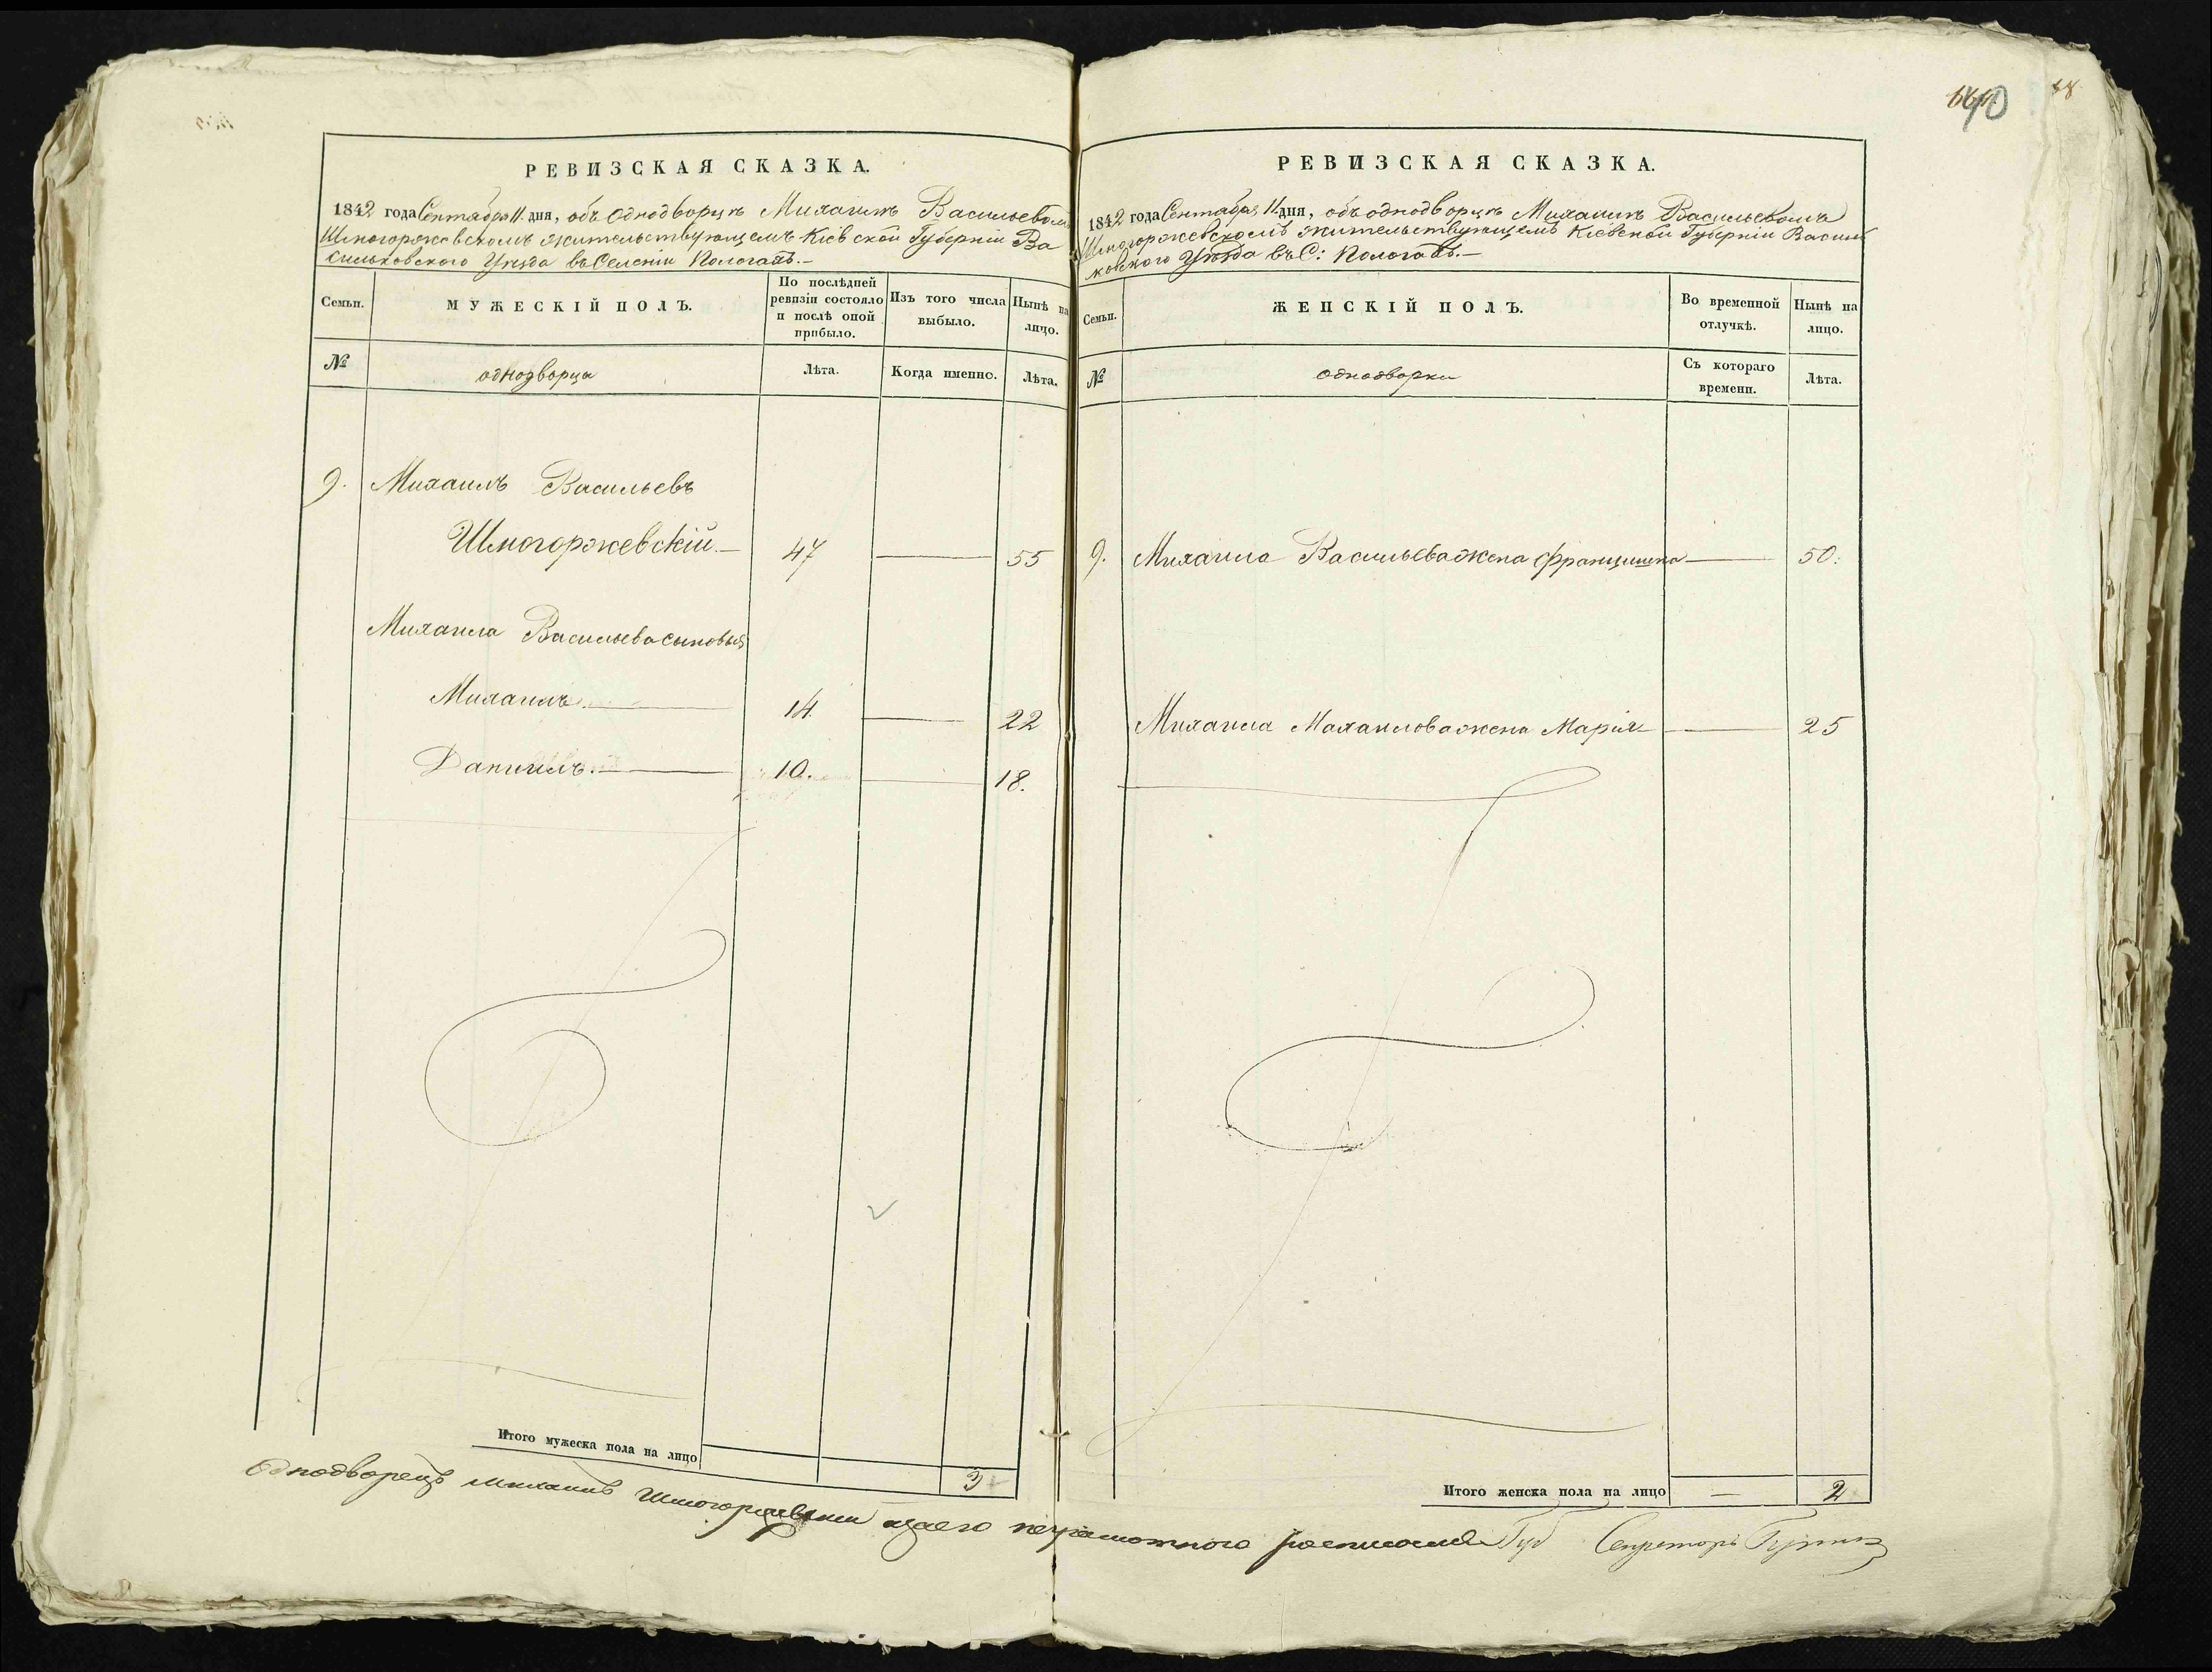 40
РЕВИЗСКАЯ СКАЗКА.
1842 года Сентября 11 дня, объ Однодворцѣ Михаилѣ Васильевомъ
Шмогоржевскомъ жительствующемъ Кіевской Губерніи Ва
сильковскаго Уѣзда въ Селеніи Пологахъ.—
Семьи.
МУЖЕСКІЙ ПОЛЪ.
По послѣдней
ревизіи состояло
и послѣ оной
прибыло.
Изъ того числа
выбыло.
Нынѣ на
лицо.
№
однодворцы
Лѣта.
Когда именно.
Лѣта.
9. Михаилъ Васильевъ
Шмогоржевскій.— 47 — 55
Михаила Васильева сыновья
Михаилъ.— 14 — 22
Даниилъ.— 10. — 18.
Итого мужеска пола на лицо 3
РЕВИЗСКАЯ СКАЗКА.
1842 года Сентября 11 дня, объ однодворцѣ Михаилѣ Васильевомъ
Шмогоржевскомъ жительствующемъ Кіевской Губерніи Василь
ковского Уѣзда въ С: Пологахъ.—
Семьи.
ЖЕНСКІЙ ПОЛЪ.
Во временной
отлучкѣ.
Нынѣ на
лицо.
№
однодворки
Съ котораго
времени.
Лѣта.
9. Михаила Васильева жена Францишка — 50.
Михаила Михаилова жена Марія — 25
Итого женска пола на лицо — 2
Однодворецъ Михаилъ Шмогоржевскій а за его неграмотного росписался Губ Секретарь